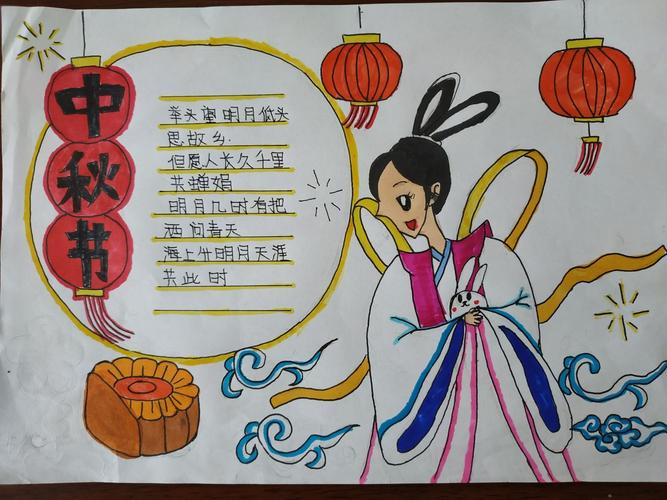 中秋节
举头望明月低头
思故乡
但愿人长久千里
共蝉娟
明月几时有把
酒问青天
海上生明月天涯
共此时